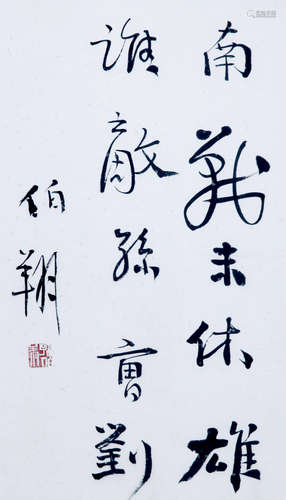 南戰未休雄
誰敵孫曹劉
伯翔